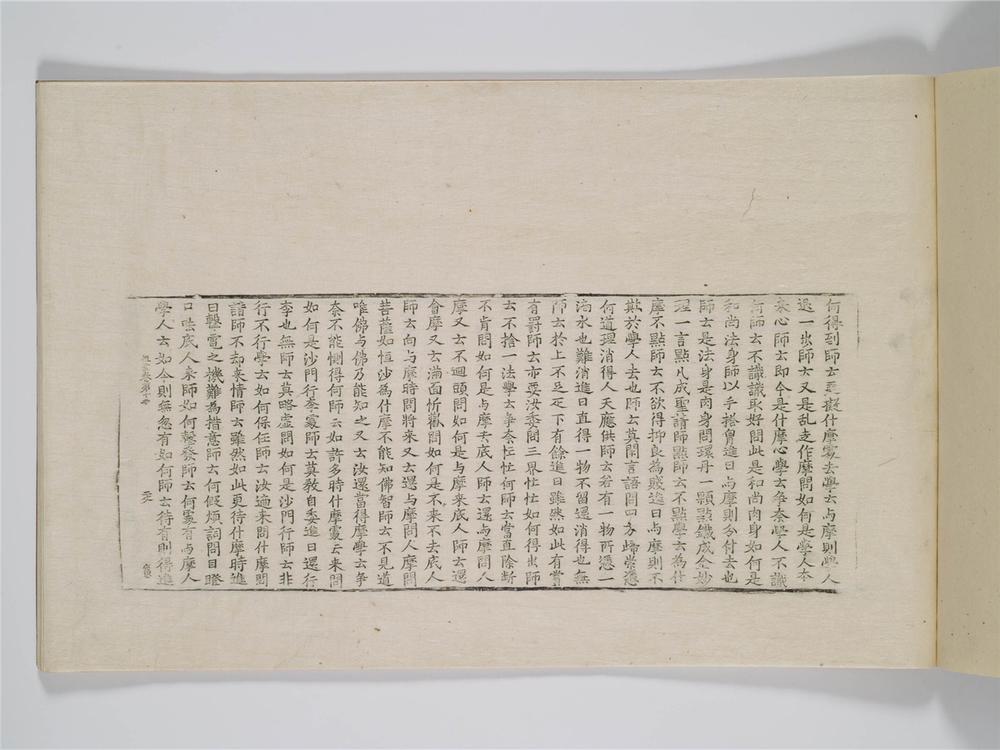 何得到師云更擬什摩處去學云与摩則學人
退一步師云又是乱走作摩問如何是學人本
来心師云即今是什摩心學云争奈學人不識
何師云不識識取好問此是和尚肉身如何是
和尚法身師以手搭胷進曰与摩則分付去也
師云是法身是肉身問環丹一顆點鐵成金妙
理一言點凡成聖請師點師云不點學云為什
摩不點師云不欲得抑良為賤進曰与摩則不
欺於學人去也師云莫閑言語問四方歸崇憑
何道理消得人天應供師云若有一物所憑一
滴水也難消進曰直得一物不留還消得也無
師云於上不足疋下有餘進曰雖然如此有賞
有罸師云亦要汝委問三界忙忙如何得出師
云不捨一法學云争奈忙忙何師云當直除断
不肯問如何是与摩去底人師云還与摩問人
摩又云不迴頭問如何是与摩来底人師云還
會摩又云滿面忻歡問如何是不来不去底人
師云向与摩時問將来又云還与摩問人摩問
菩薩如恒沙為什摩不能知佛智師云不見道
唯佛与佛乃能知之又云汝還當得摩學云争
奈不能惻得何師云如許多時什摩處云来問
如何是沙門行李處師云莫教自委進曰還行
李也無師云莫略虚問如何是沙門行師云非
行不行學云如何保任師云汝適来問什摩問
諸師不却来情師云雖然如此更待什摩時進
曰擊電之機難為措意師云何假煩詞問目瞪
口呿底人来師如何擊發師云何處有与摩人
學人云如今則無忽有如何師云待有則得進